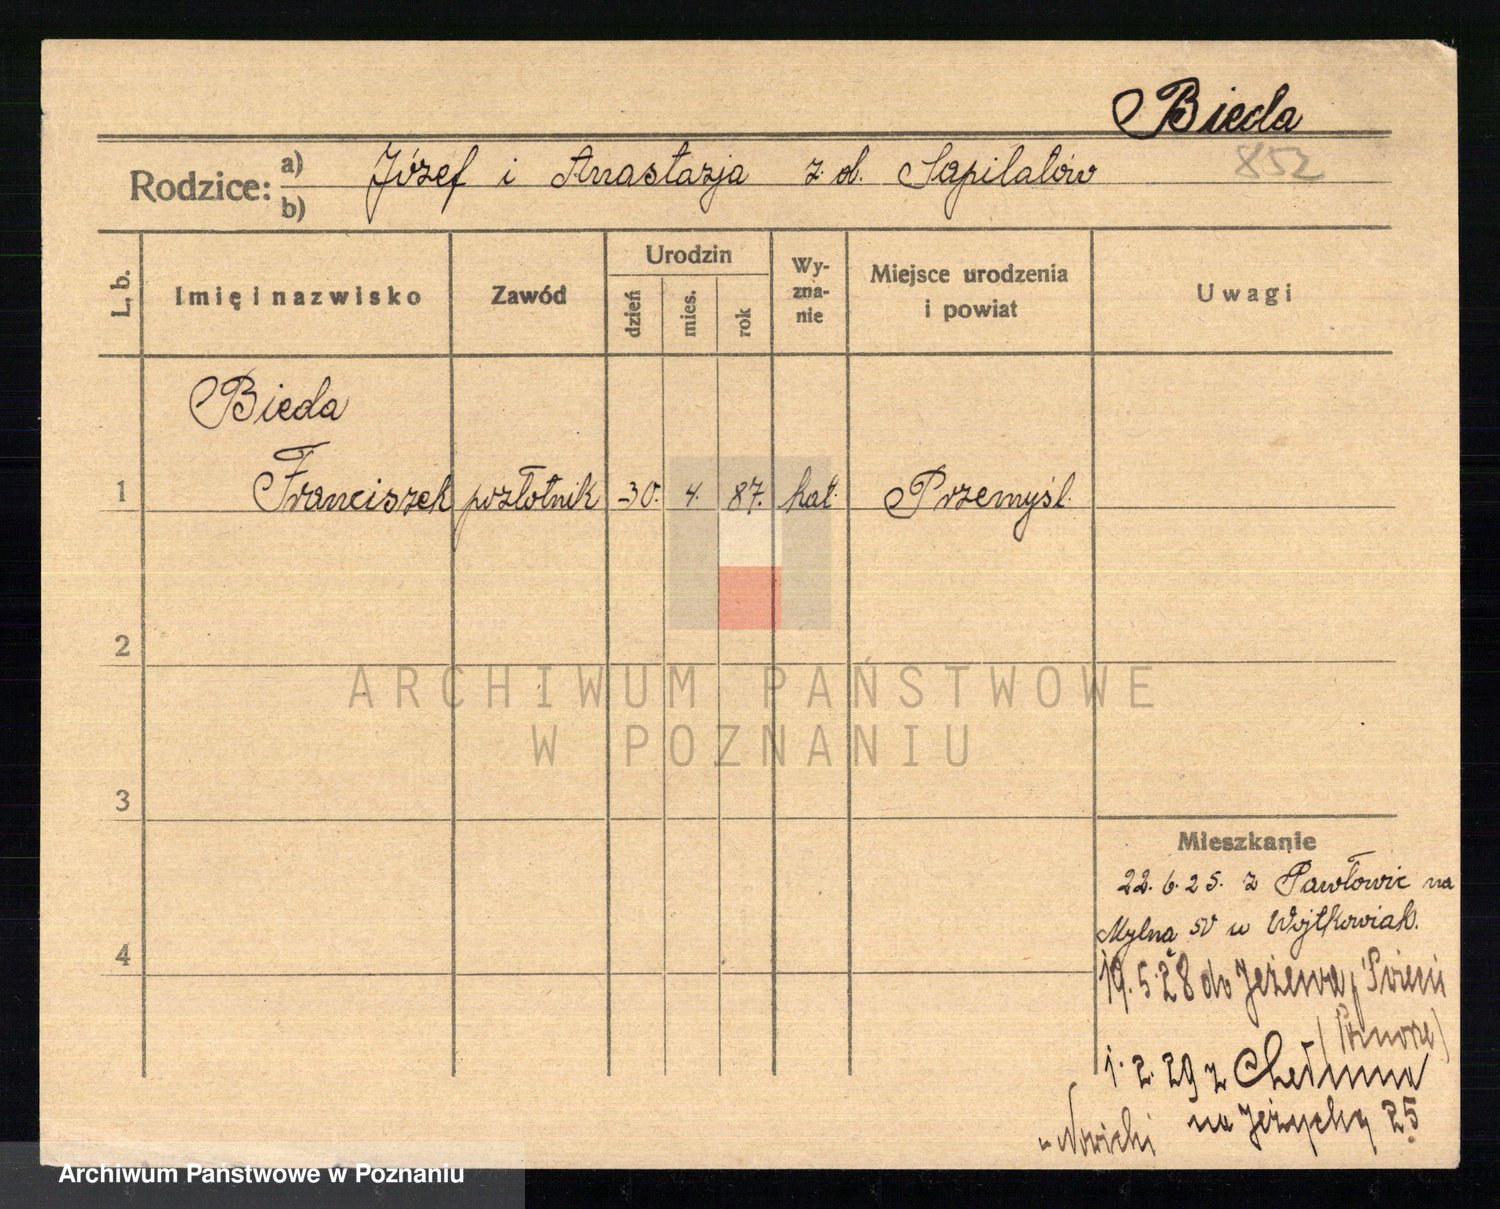 Bieda
852
Rodzice: a) Józef i Anastazja z d. Sapilatów
b)
L. b. Imię i nazwisko Zawód Urodzin dzień mies. rok Wyznanie Miejsce urodzenia i powiat Uwagi
Bieda
1 Franciszek pozłotnik 30. 4. 87. kat. Przemyśl.
2
ARCHIWUM PAŃSTWOWE
W POZNANIU
3
Mieszkanie
22. 6. 25. z Pawłowic na
Mylna u Wojtkowiak.
4
19. 5. 28 do Jeżewa
1. 2. 29 z Chełmna
na Jeżycką 25
Nowicki
Archiwum Państwowe w Poznaniu